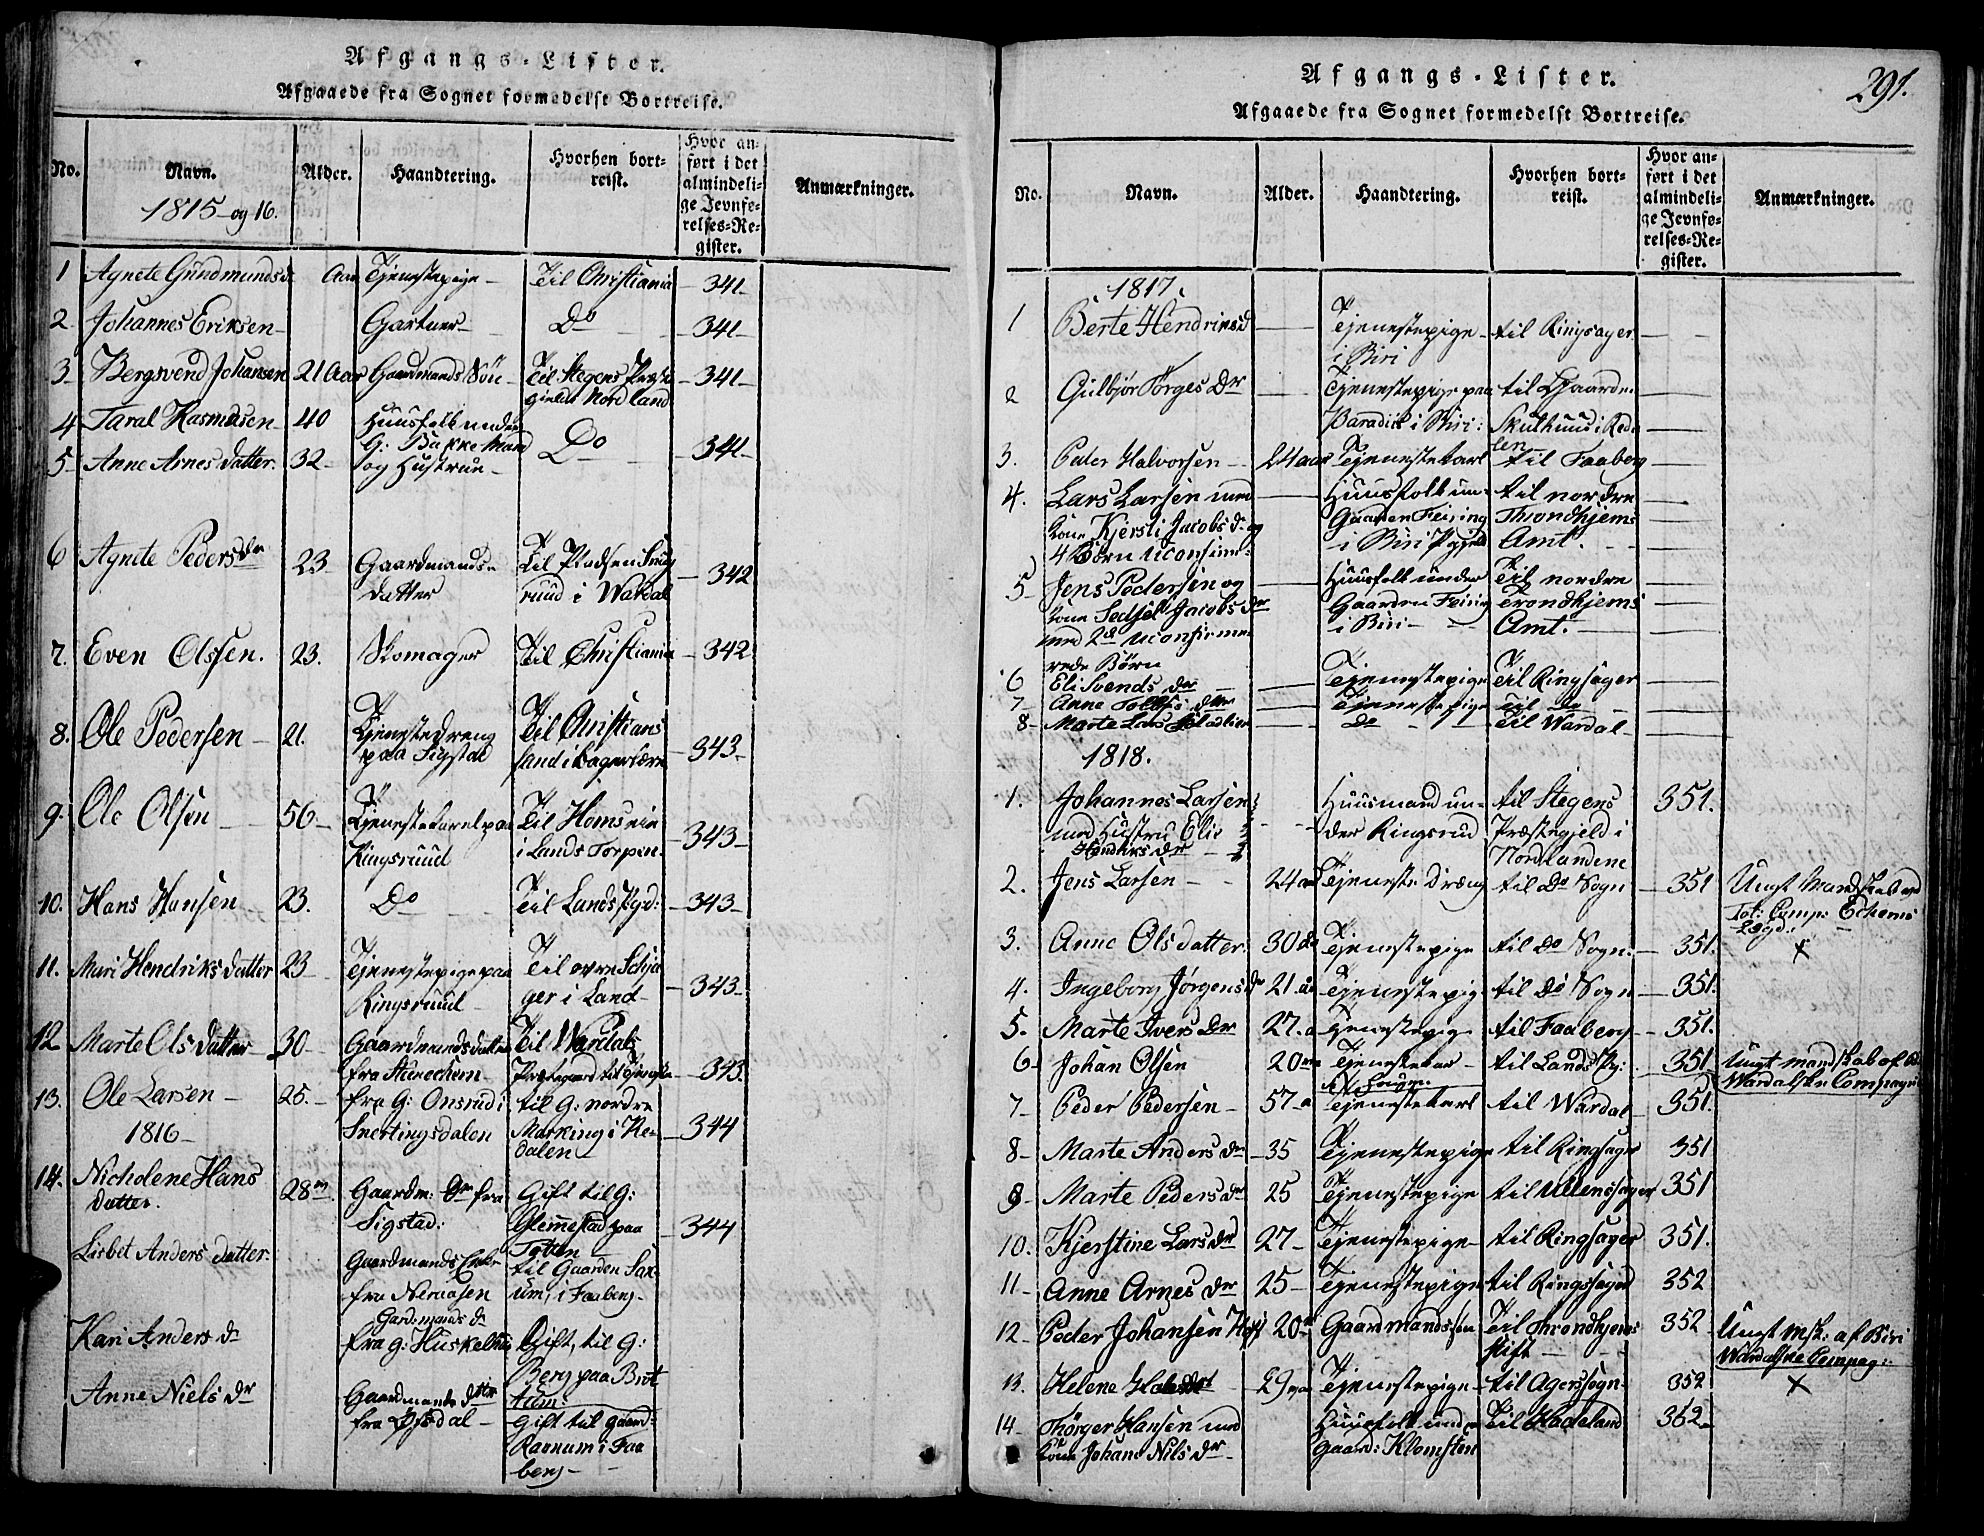 Afgangs-Lister.
Afgaaede fra Sognet formedelst Bortreise.
No.
Navn.
1815 og 16.
Alder.
Haandtering.
Hvorhen bort-
reist.
Hvor an-
ført i det
almindeli-
ge Jevnfø-
relses-Re-
gister.
Anmærkninger.
1 Agnete Gundmundsdr Aar Tjenestepige Til Christiania 341
2 Johannes Eriksen Gartner Do 341
3 Bergsvend Johansen 21 Aar Gaardmands Søn Til Stegens Præste
gield Nordland 341
4 Taral Rasmusen 40 Huusfolk under
5. Anne Arnes Datter 32 G: Bakke Mand
og Hustrue Do 341
6 Agnete Pedersdr 23 Gaardmands-
datter Til Pladsen
ruud i Wardal 342
7. Even Olssen. 23. Skomager Til Christiania 342
8. Ole Pedersen 21. Tjenestedreng
paa Sigstad Til Christians
sand i 343
9. Ole Olsen 56 Tjenestekarel paa
Ringsruud Til
i Lands Torpen 343
10. Hans Hansen 23. Do Til Lands Pgd: 343
11. Mari Hendriks datter 23 Tjenestepige paa
Ringsruud Til øvre
ger i Land 343
12 Marte Ols datter 30 Gaardmandsdatter
fra Til Wardals
Præstegaard 343
13. Ole Larsen 25. fra G: Onsrud i
Snertingsdalen til G: nordre
Marking i Re-
dalen 344
1816
14. Nicholene Hans
datter. 28 Gaardm: Dr fra
Sigstad: Gift til G:
Glemestad paa
Totten 344
Lisbet Anders datter: Gaardmands Enke
fra Neraasen til Gaarden Sax-
um, i Faaberg
Kari Anders dr Gardemands dr
fra g: Huskelhus Gift, til G:
Berg paa Brøt
tum:
Anne Niels dr Gaardmands dttr
fra Øfsdal Gift til gaard
Rannum i Faa
berg
291.
Afgangs-Lister.
Afgaaede fra Sognet formedelst Bortreise.
No.
Navn.
Alder.
Haandtering.
Hvorhen bort-
reist.
Hvor an-
ført i det
almindeli-
ge Jevnfø-
relses-Re-
gister.
Anmærkninger.
1817.
1 Berte Hendriksd Tjenestepige
i Biri til Ringsager
2 Gulbjør Torges Dr Tjenestepige paa
Paradiis i Biri: til Gaarden
Skulhuus i Reda
len
3. Peder Halvorsen 24 aar Tjenestekarl til Faaberg
4. Lars Larsen med
kone Kjersti Jacobs dr og
4 Børn uconfirm: Huusfolk un-
Gaarden Feiring
i Biri Pgjeld til nordre
Throndhjems
Amt.
5 Jens Pedersen og
kone Sedsel Jacobs Dr
med 2de uconfirme
rede Børn Huusfolk under
Gaarden Feirig
i Biri Til nordre
Trondhjems
Amt.
6 Eli Svends dr Tjenestepige Til Ringsager
7 Anne Tollefs dtr Tjenestepige Til Do
8 Marte Lars Do Til Wardal
1818.
1. Johannes Larsen
med Hustru Elie
Hendriks dr Huusmand un-
der Ringsrud til Stegens
Præstegjeld i
Nordlandene 351.
2. Jens Larsen 24 aar Tjeneste dræng til Do Sogn 351 Ungt Mandskab ved
Tot: Comp: Echems
Lægd.
3. Anne Ols datter. 30 do Tjenestepige til Do Sogn 351. X
4. Ingeborg Jørgens dr 21. aar Tjenestepig til Do Sogn 351.
5. Marte Ivers dr 27. a Tjenestepige til Faaberg 351.
6 Johan Olsen 20 Tjenestekar til Lands Pg: 351 Ungt mandskab af
Wardalske Compagnie
7 Peder Pedersen 57 a Tjenestekarl til Wardal 351.
8 Marte Anders dr 35 Tjenestepige til Ringsager 351
9 Marte Peders dr 25 Tjenestepige til Ullensager 351
10. Kjerstine Lars dr 27 Tjenestepige til Ringsager 351.
11 Anne Arnes dr 25 Tjenestepige til Ringsager 352
12 Peder Johansen 20 Gaardmandssøn Til Throndhjems
stift 352 Ungt Msk: af Biri
Wardalske Compag:
13. Helene 29 Tjenestepige til Agerssogn 352 X
14 Thørger Hansen med
kone Johane Nils dr Huusfolk under
Gaard: Klomsten Til Hadeland 352